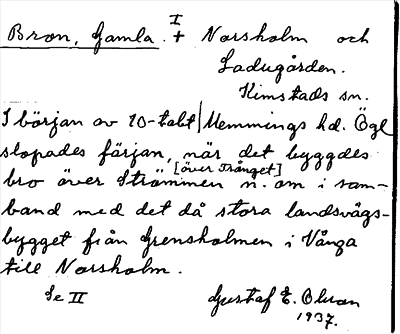 Bron, Gamla. I + Norsholm och
Ladugården.
Kimstads sn.
I början av 20-talet Memmings hd. Ögl
slopades färjan, när det byggdes
bro över Strömmen [över Trånget] n. om i sam-
band med det då stora landsvägs-
bygget från Grensholmen i Vånga
till Norsholm.
Se II Gustaf E. Olsson
1937.